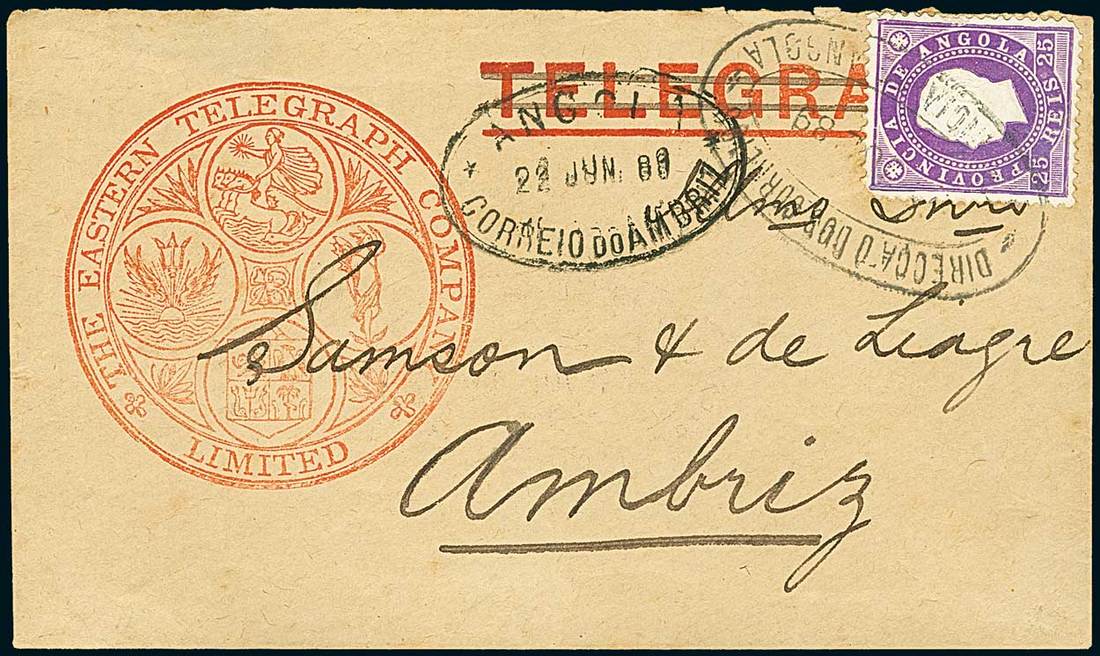 THE EASTERN TELEGRAPH COMPANY
LIMITED
TELEGRA
ANGOLA
22 JUN. 88
CORREIO DO AMBRIZ
ANGOLA
89
DIRECÇAÕ DO CORREIO
PROVINCIA DE ANGOLA
25 REIS 25
Samson & de Liagre
Ambriz